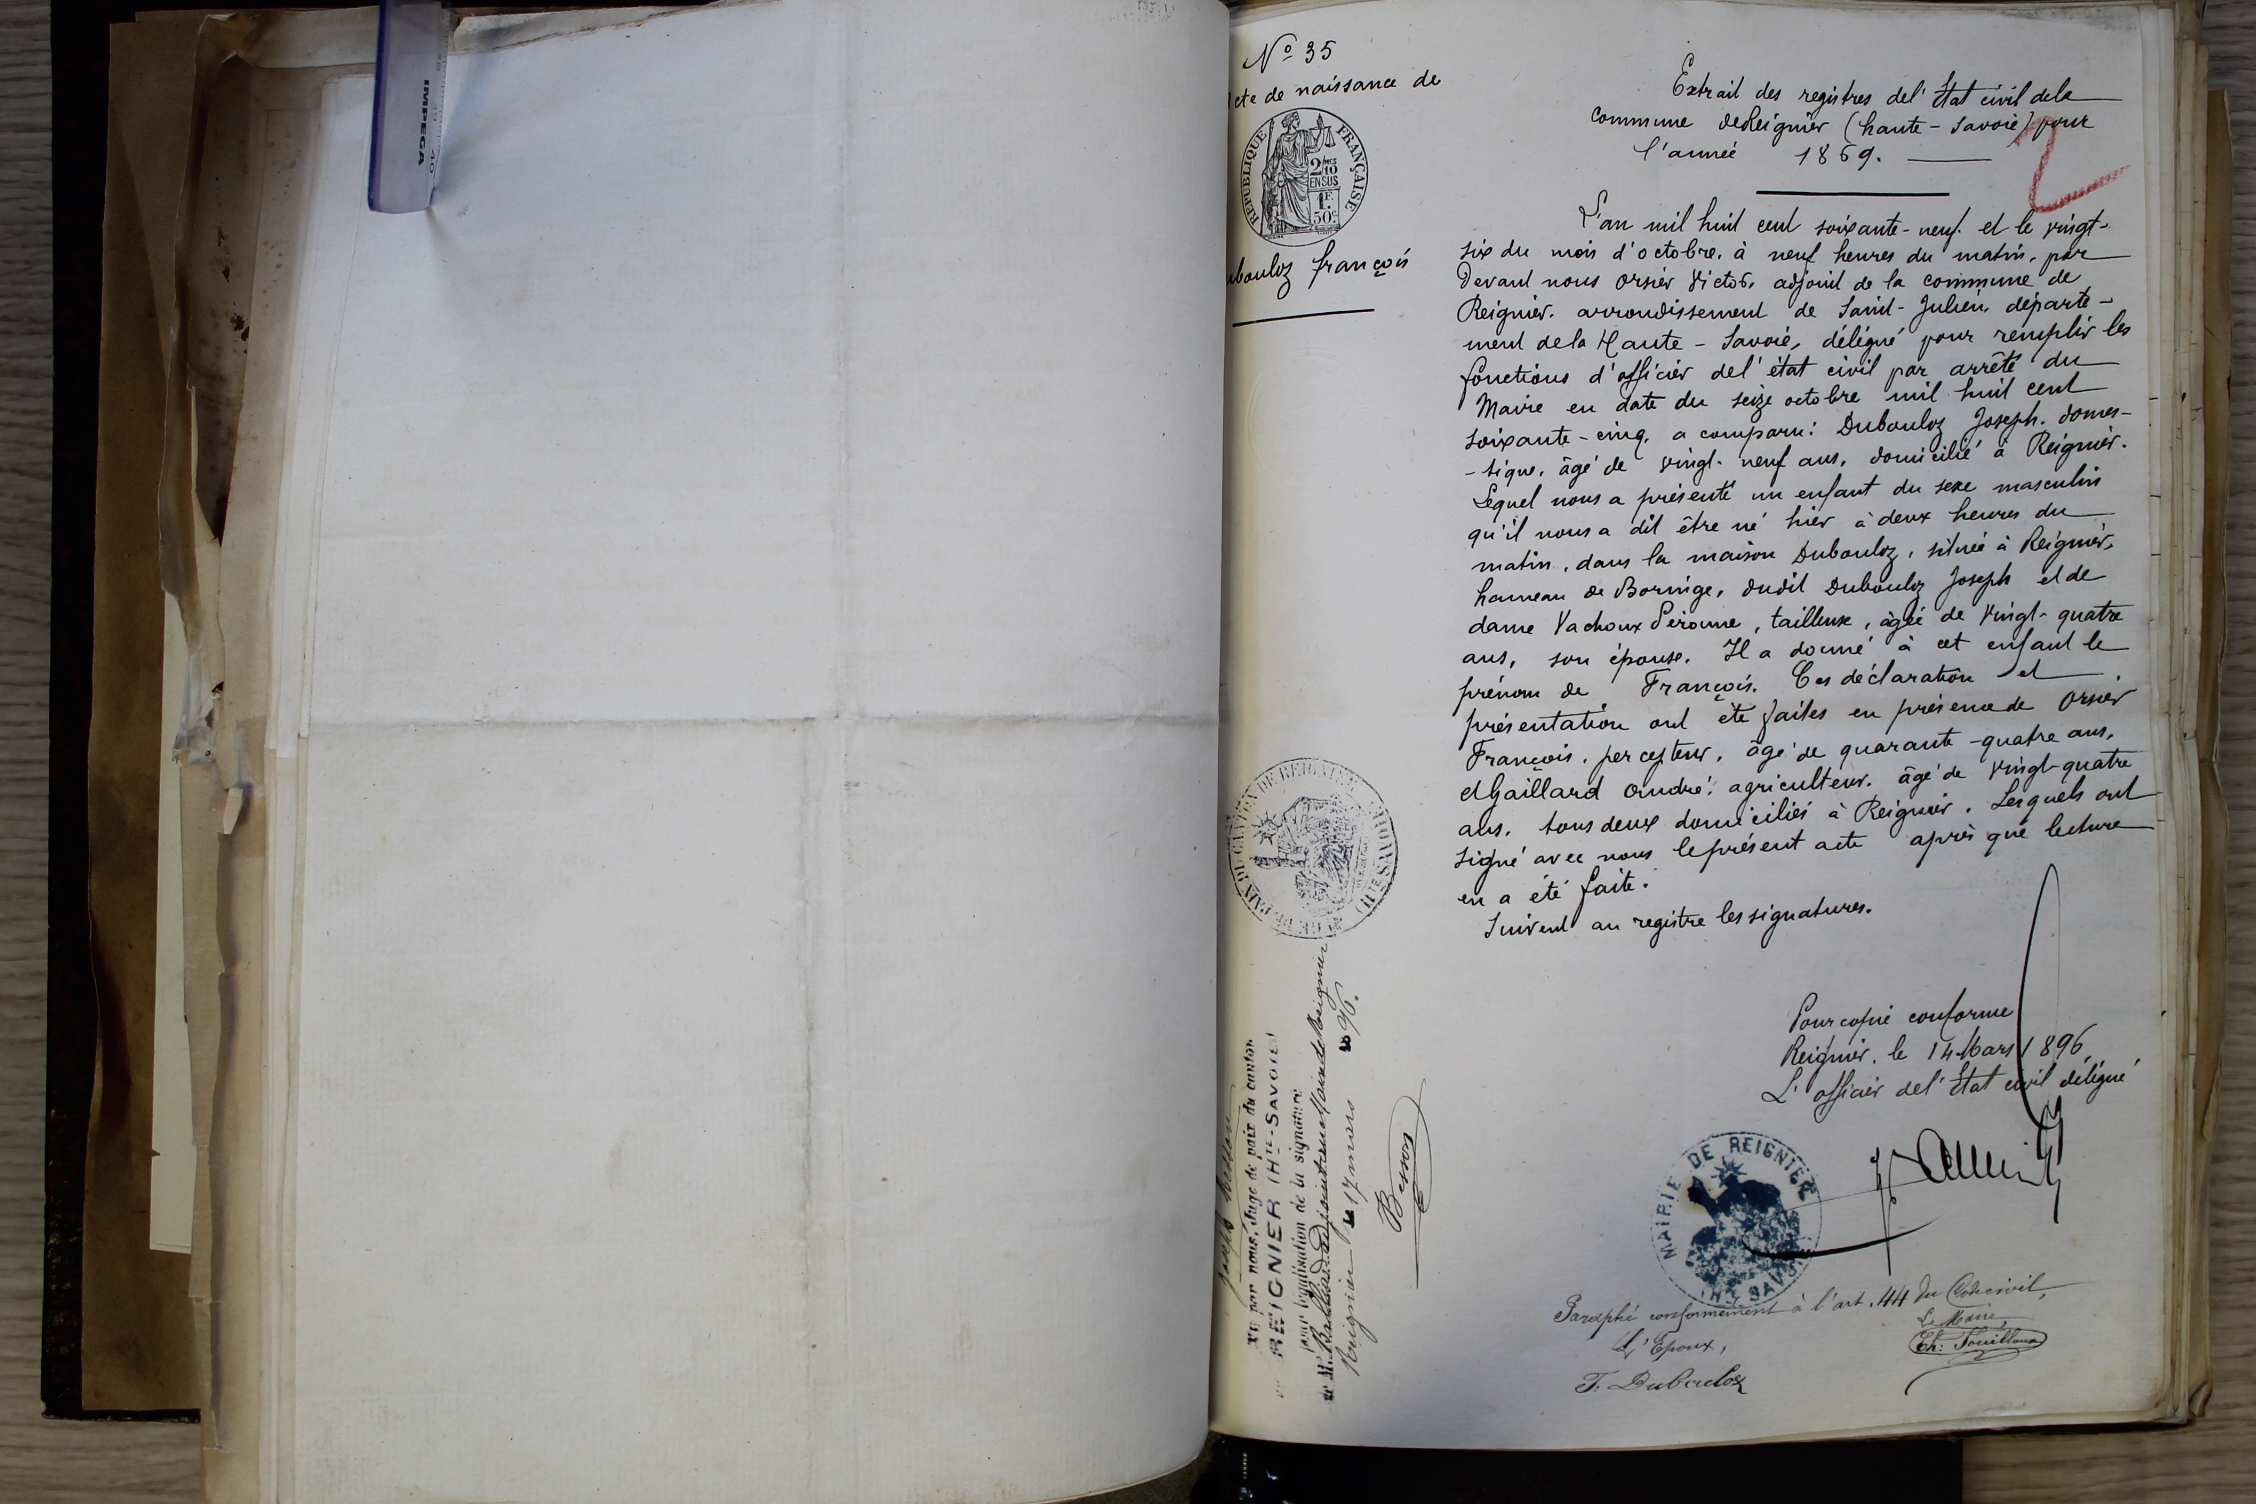 IMPEGA
40
Nº 35
cte de naissance de
REPUBLIQUE FRANÇAISE
2/10
EN SUS
1F.
50c
ubouloz françois
Extrait des registres del' Etat civil dela
commune deReignier (haute-savoie) pour
l'année 1869.
2
L'an mil huit cent soixante-neuf. et le vingt-
six du mois d'octobre. à neuf heures du matin. par
Devant nous orsier Victor. adjoint de la commune de
Reignier. arrondissement de Saint-Julien. départe-
ment dela Haute-Savoie, délégué pour remplir les
fonctions d'officier del'état civil par arrêté du
Maire en date du seize octobre mil huit cent
soixante-cinq. a comparu: Dubouloz Joseph. domes-
-tique. âgé de vingt-neuf ans. domicilié à Reignier.
Lequel nous a présenté un enfant du sexe masculin
qu'il nous a dit être né hier à deux heures du
matin. dans la maison Dubouloz. située à Reignier,
hameau de Boringe, dudit Dubouloz Joseph et de
dame Vachoux Péronne, tailleuse, âgée de vingt-quatre
ans, son épouse. Il a donné à cet enfant le
prénom de François. Ces déclaration et
présentation ont été faites en présence de orsier
François. percepteur. âgé de quarante-quatre ans.
et Gaillard andré. agriculteur. âgé de vingt-quatre
ans. tous deux domiciliés à Reignier. Lesquels ont
signé avec nous le présent acte après que lecture
en a été faite.
Suivent au registre les signatures.
Pour copie conforme
Reignier. le 14 Mars 1896
L'officier del'Etat civil délégué
MAIRIE DE REIGNIER
(Hte SAVOIE)
Paraphé conformément à l'art. 44 du Code civil,
Le Maire,
L'Epoux,
F. Dubouloz
DE PAIX DU CANTON DE REIGNIER
(Hte SAVOIE)
Vu par nous, Juge de paix du canton
de REIGNIER (Hte-SAVOIE)
pour légalisation de la signature
de M.
Reignier le 17 mars 1896.